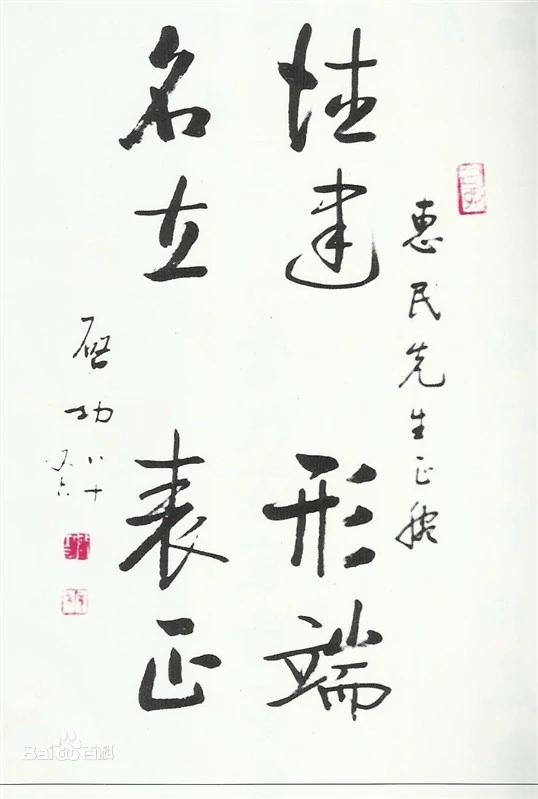 惠民先生正腕
德建 形端
名立 表正
启功 八十
又六
Bai百科